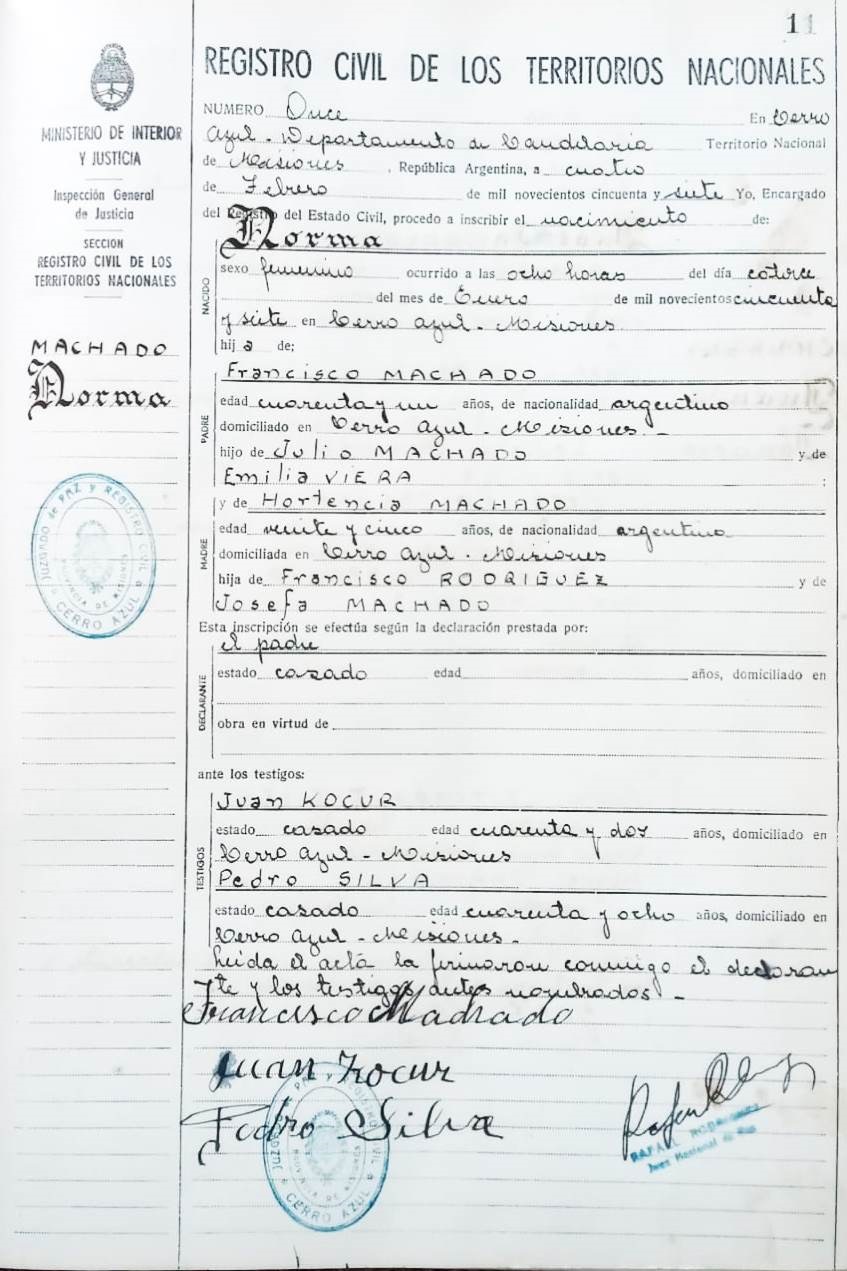 11
REGISTRO CIVIL DE LOS TERRITORIOS NACIONALES
MINISTERIO DE INTERIOR
Y JUSTICIA
Inspección General
de Justicia
SECCION
REGISTRO CIVIL DE LOS
TERRITORIOS NACIONALES
MACHADO
Norma
JUZGADO de PAZ y REGISTRO CIVIL
PROVINCIA DE MISIONES
CERRO AZUL
NUMERO Once En Cerro
Azul - Departamento de Candelaria Territorio Nacional
de Misiones, República Argentina, a cuatro
de Febrero de mil novecientos cincuenta y siete Yo, Encargado
del Registro del Estado Civil, procedo a inscribir el nacimiento de:
Norma
NACIDO
sexo femenino ocurrido a las ocho horas del día catorce
del mes de Enero de mil novecientos cincuenta
y siete en Cerro Azul - Misiones
hija de;
PADRE
Francisco MACHADO
edad cuarenta y un años, de nacionalidad argentino
domiciliado en Cerro Azul - Misiones -
hijo de Julio MACHADO y de
Emilia VIERA ;
y de Hortencia MACHADO
MADRE
edad veinte y cinco años, de nacionalidad argentina
domiciliada en Cerro Azul - Misiones
hija de Francisco RODRIGUEZ y de
Josefa MACHADO
Esta inscripción se efectúa según la declaración prestada por:
el padre
DECLARANTE
estado casado edad años, domiciliado en
obra en virtud de
ante los testigos:
TESTIGOS
Juan KOCUR
estado casado edad cuarenta y dos años, domiciliado en
Cerro Azul - Misiones
Pedro SILVA
estado casado edad cuarenta y ocho años, domiciliado en
Cerro Azul - Misiones -
Leída el acta la firmaron conmigo el declaran
te y los testigos antes nombrados -
Francisco Machado
Juan Kocur
Pedro Silva
JUZGADO PAZ y REGISTRO CIVIL
PROVINCIA DE MISIONES
CERRO AZUL
RAFAEL
Juez Nacional de Paz